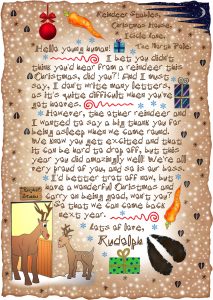 Reindeer Stables,
Christmas House,
Icicle Lane,
The North Pole.
Hello young human!
I bet you didn't
think you'd hear from a reindeer this
Christmas, did you?! And I must
say, I don't write many letters,
as it's quite difficult when you've
got hooves.
However, the other reindeer and
I wanted to say a big thank you for
being asleep when we came round.
We know you get excited and that
it can be hard to drop off, but this
year you did amazingly well! We're all
very proud of you, and so is our boss.
I'd better trot off now, but
have a wonderful Christmas and
carry on being good, won't you?
So that we can come back
next year.
Lots of love,
Rudolph